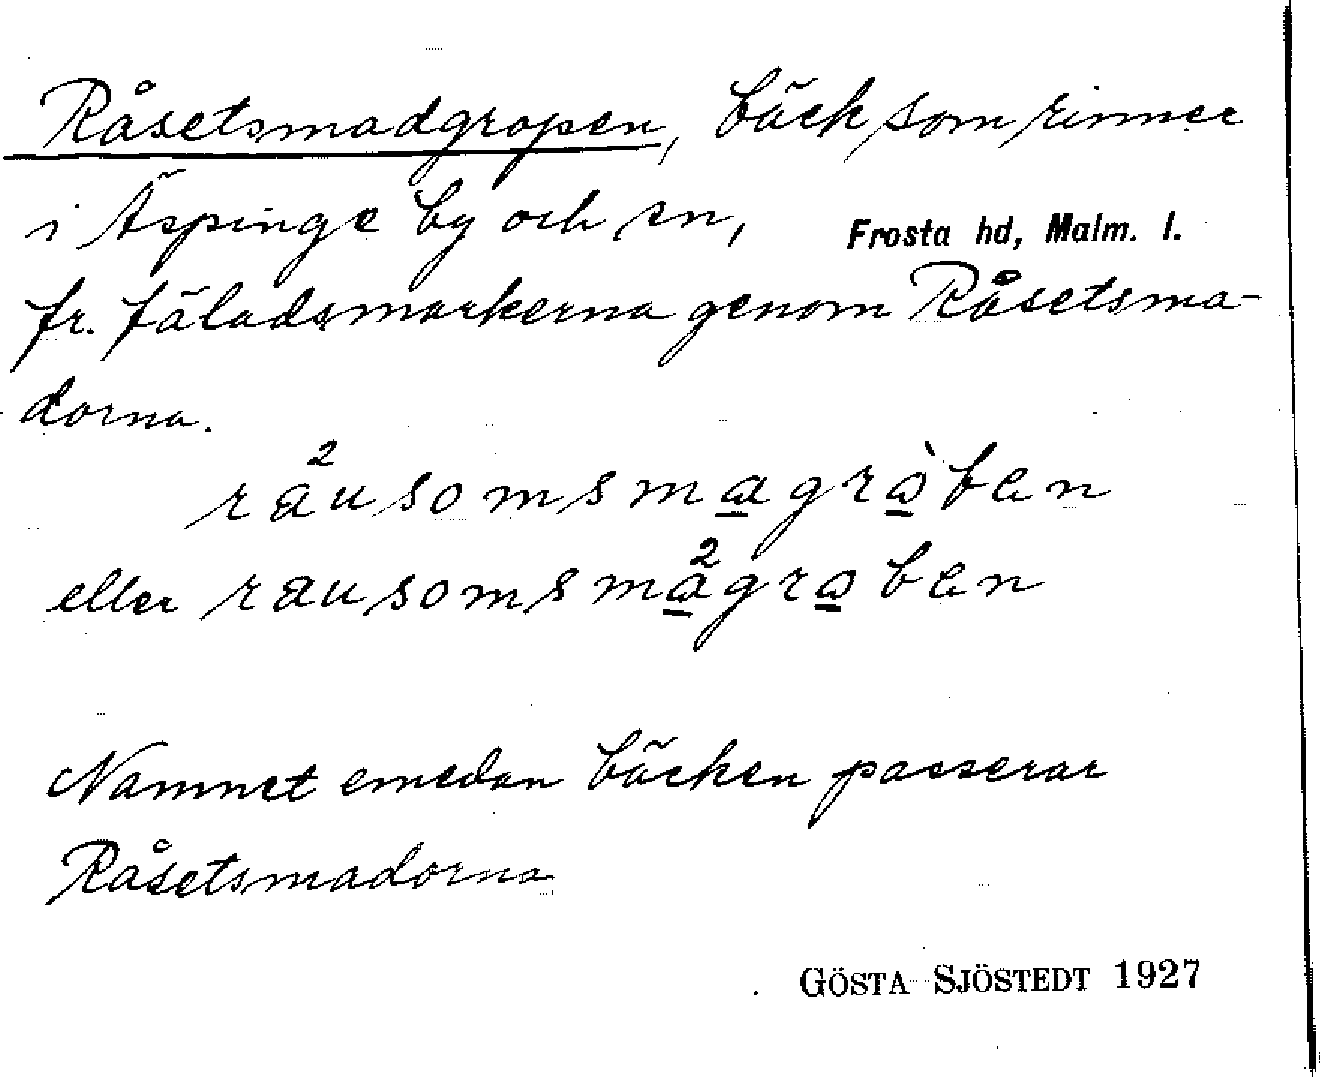 Råsetsmadgropen, bäck som rinner
i Äspinge by och sn, Frosta hd, Malm. l.
fr. fäladsmarkerna genom Råsetsma-
dorna.
rau²somsmagràben
eller rausomsma²graben
Namnet emedan bäcken passerar
Råsetsmadorna
GÖSTA SJÖSTEDT 1927